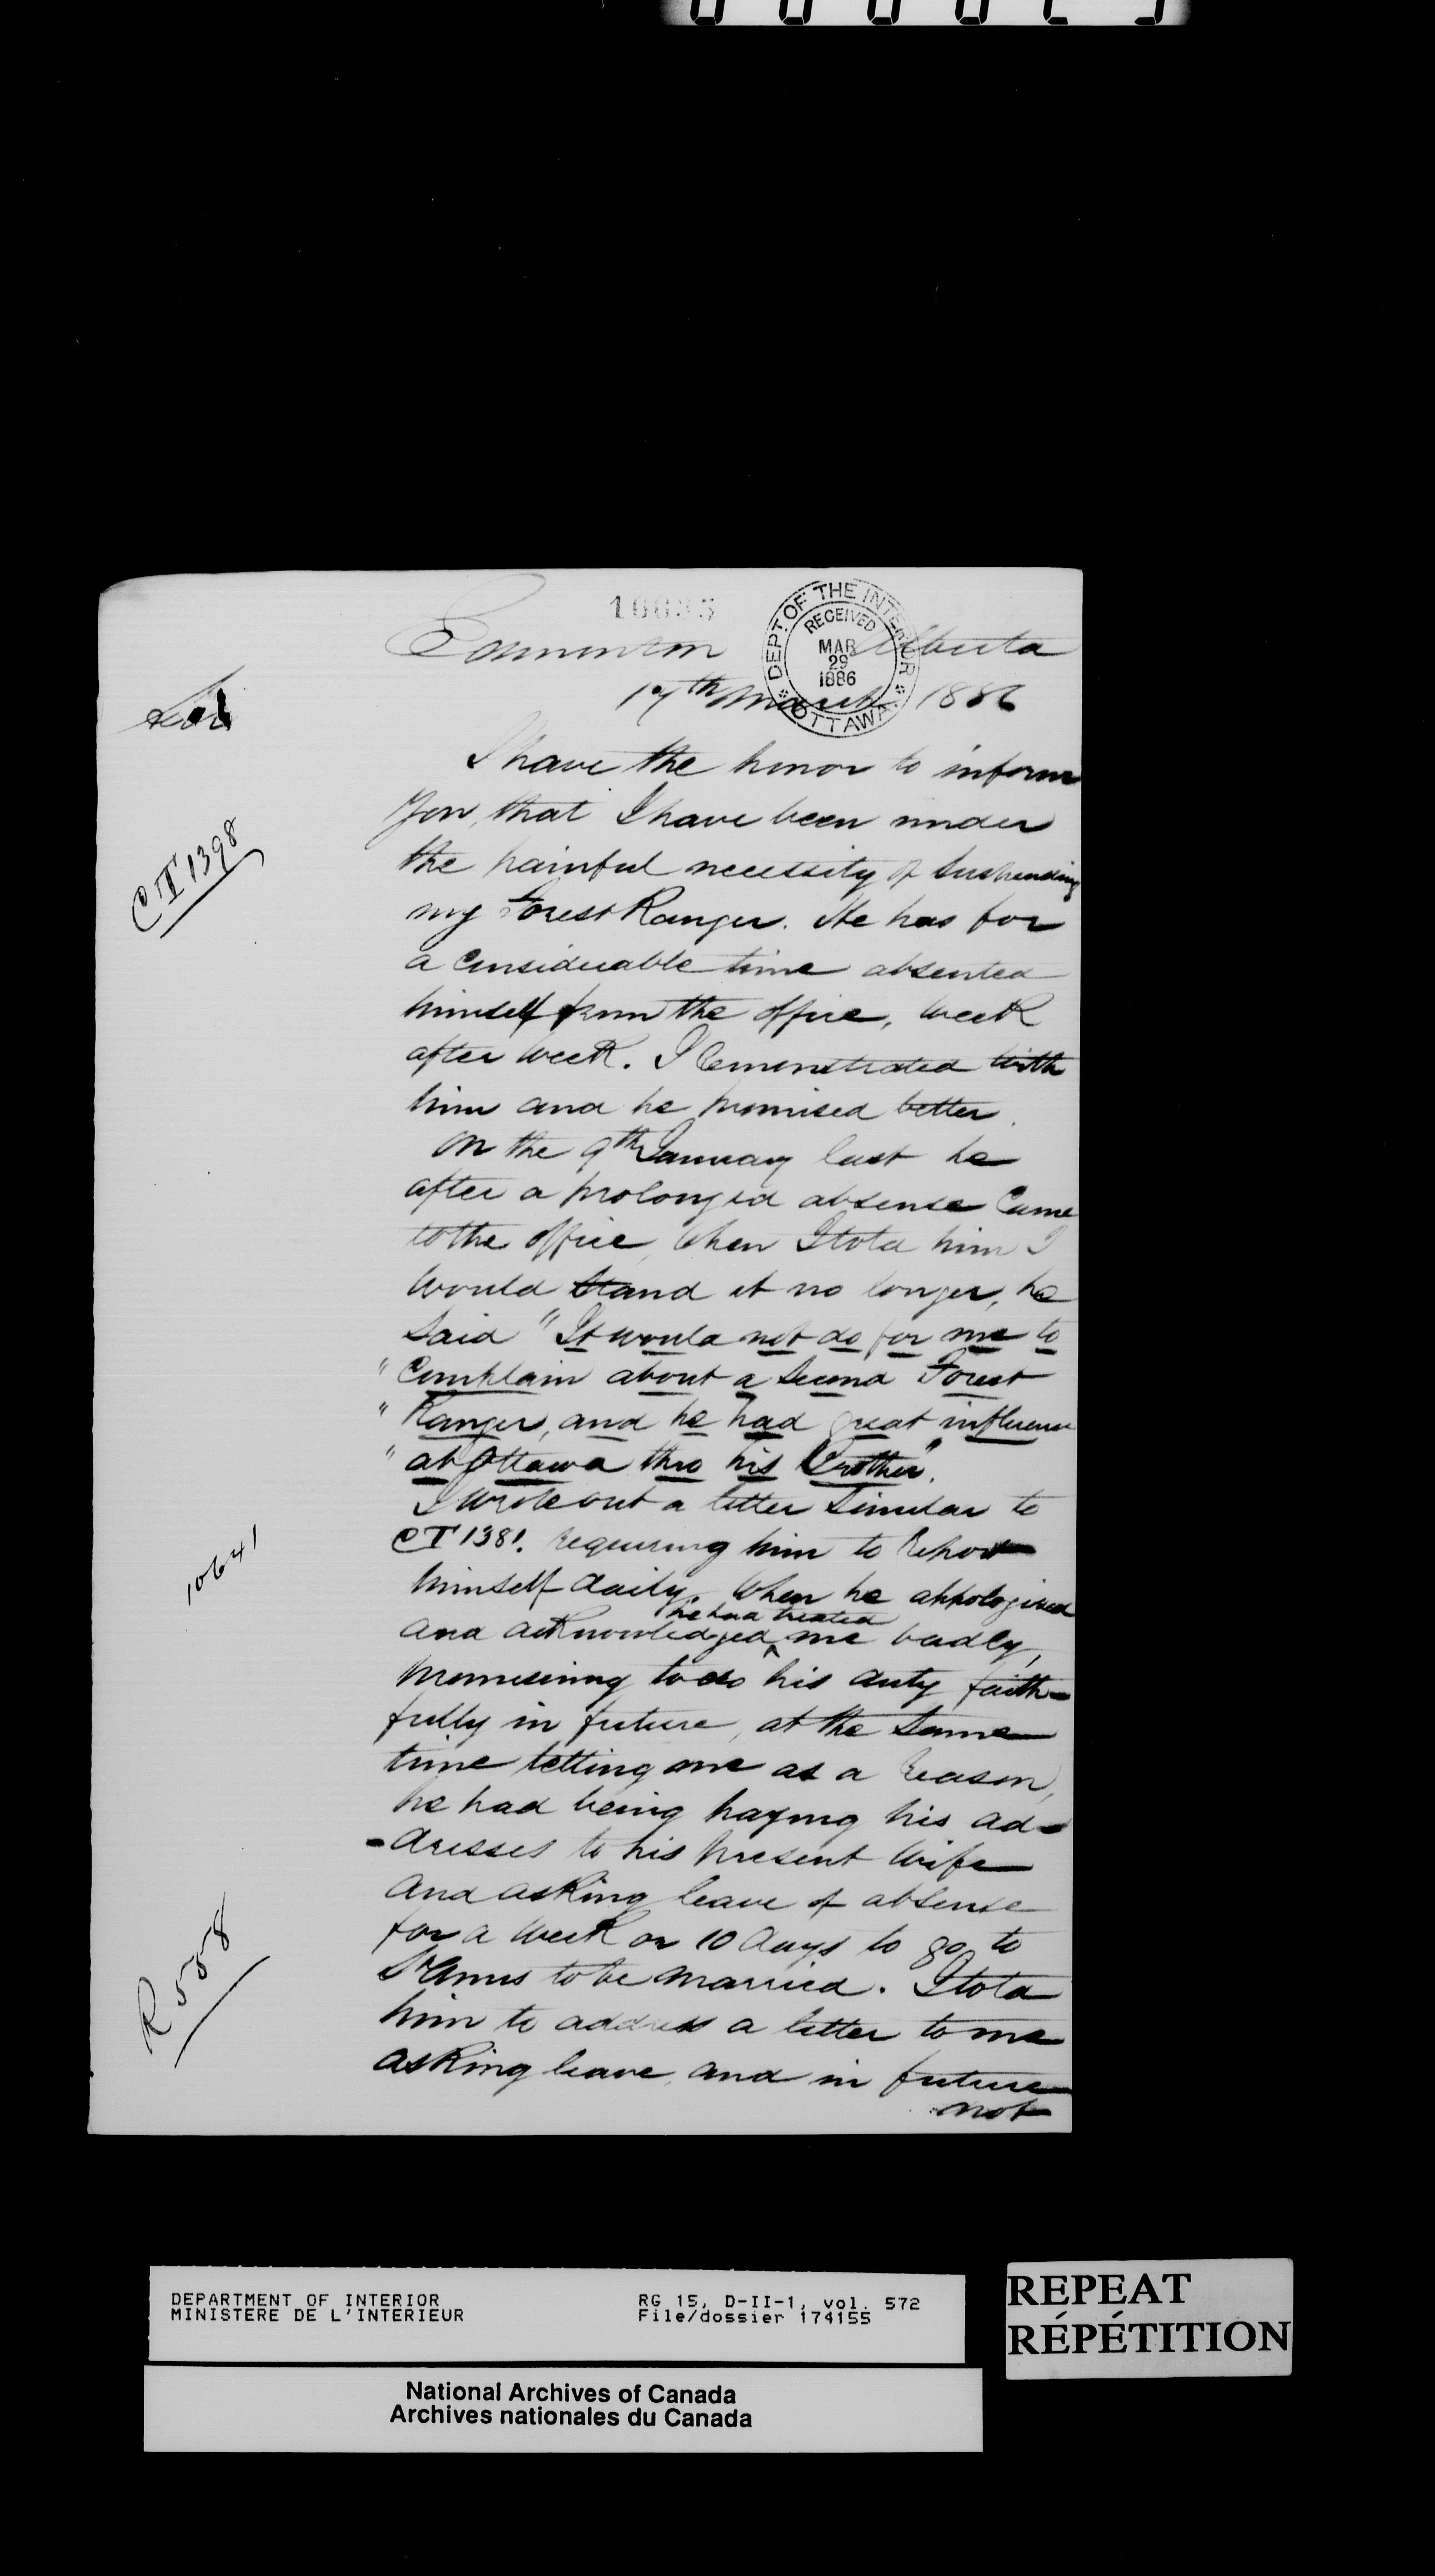 Edmonton Alberta
17th March 1886
DEPT. OF THE INTERIOR
RECEIVED
MAR
29
1886
OTTAWA
Sir
I have the honor to inform
you, that I have been under
the painful necessity of suspending
CTT 1398
my Forest Ranger. He has for
a considerable time absented
himself from the office, week
after week. I remonstrated with
him and he promised better.
On the 9th January last he
after a prolonged absence came
to the office, when I told him I
would stand it no longer, he
said "It would not do for me to
" complain about a second Forest
" Ranger, and he had great influence
" at Ottawa thro his Brother".
I wrote out a letter similar to
CT 1381. requiring him to report
10641
himself daily. When he appologized
and acknowledged he had treated me badly,
promising to do his duty faith-
fully in future, at the same
time telling me as a reason,
he had being paying his ad-
-dresses to his present wife
and asking leave of absence
for a week or 10 days to go to
R 558
St Anns to be married. I told
him to address a letter to me
asking leave, and in future
not
DEPARTMENT OF INTERIOR
MINISTERE DE L'INTERIEUR
RG 15, D-II-1, vol. 572
File/dossier 174155
REPEAT
RÉPÉTITION
National Archives of Canada
Archives nationales du Canada